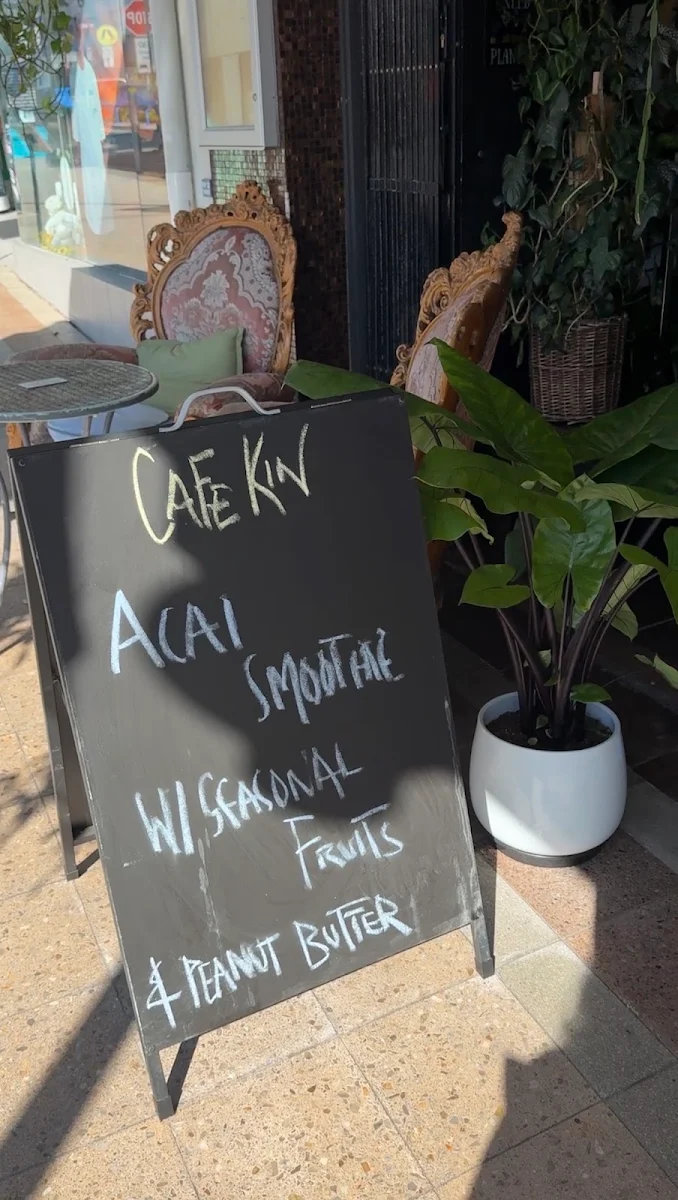 STOP
PLAN
CAFE KIN
ACAI
SMOOTHIE
W/ SEASONAL
FRUITS
& PEANUT BUTTER